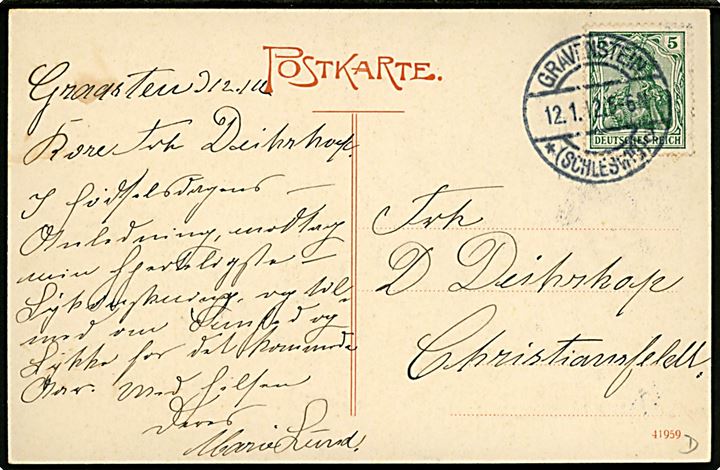 POSTKARTE.
Graasten
Kære Frk Deihrhop.
I Fødselsdagens
Anledning, modtag
min hjerteligste
Lykønskning, og til-
med om Sundhed og
Lykke for det kommende
Aar. Med Hilsen
Deres
Marie Lund.
GRAVENSTEIN
12.1.12.5-6
* (SCHLESWIG)
5
DEUTSCHES REICH
Frk
D Deihrhop
Christiansfeldt.
41959
D